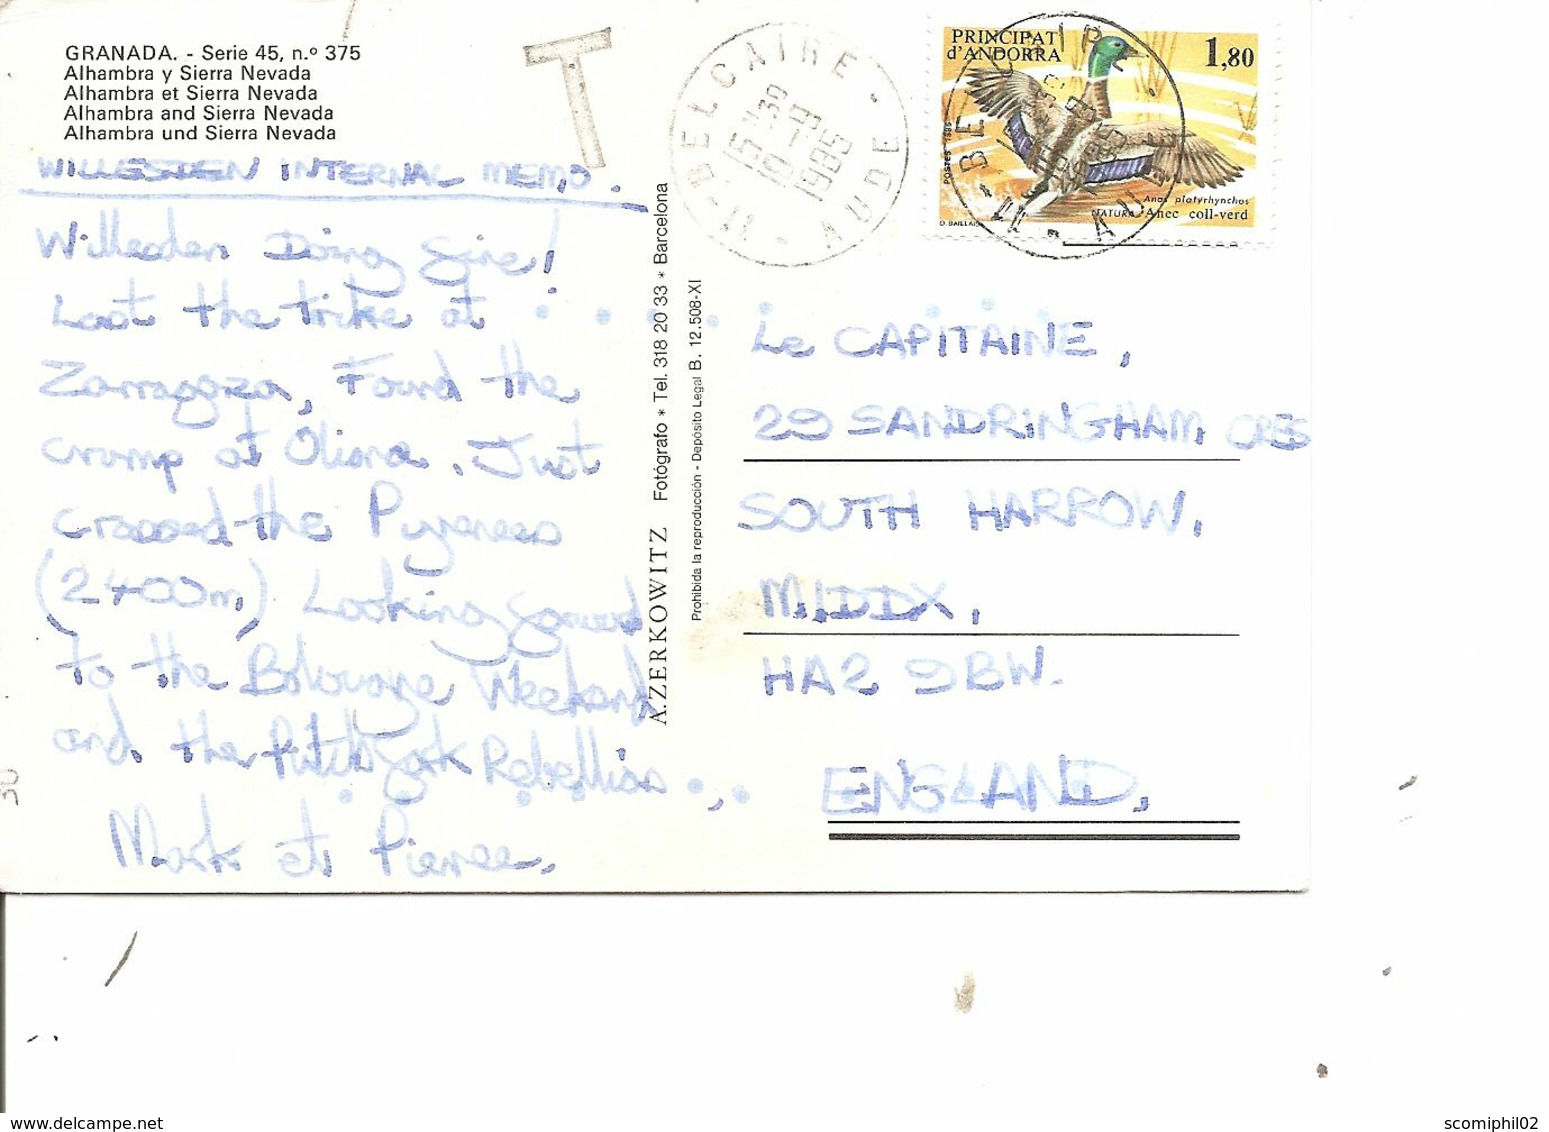 GRANADA. - Serie 45, n.º 375
Alhambra y Sierra Nevada
Alhambra et Sierra Nevada
Alhambra and Sierra Nevada
Alhambra und Sierra Nevada
T
BELCAIRE
15 H 30
10 - 9
1985
11 - AUDE
PRINCIPAT
d'ANDORRA
1,80
POSTES 1985
Anas platyrhynchos
NATURA Anec coll-verd
O. BAILLAIS
WILLESDEN INTERNAL MEMO.
Willesden Doing Fine!
Lost the trike at
Zarragoza, Found the
crump at Oliana. Just
crossed the Pyrenees
(2400m) Looking forward
to the Bolougne Weekend
and the Rebellion
Mark et Pierre.
A. ZERKOWITZ Fotógrafo * Tel. 318 20 33 * Barcelona
Prohibida la reproducción - Depósito Legal B. 12.508-XI
Le CAPITAINE,
29 SANDRINGHAM CRES
SOUTH HARROW,
MIDDX,
HA2 9BW.
ENGLAND.
www.delcampe.net
scomiphil02